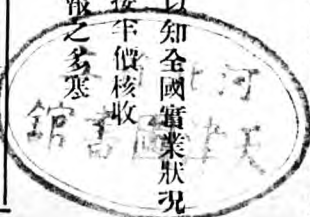 以知全國實業狀況
按半價核收
報之多寡
河北
天津圖書館